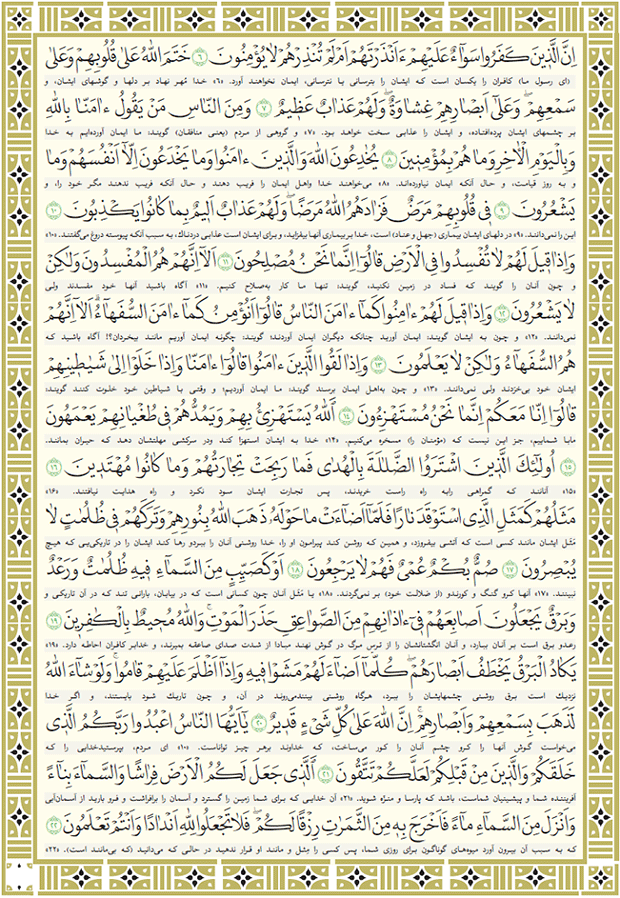 اِنَّ الَّذينَ كَفَرُوا سَوآءٌ عَلَيْهِمْ ءَاَنْذَرْتَهُمْ اَمْ لَمْ تُنْذِرْهُمْ لا يُؤْمِنُونَ ﴿٦﴾ خَتَمَ اللهُ عَلى قُلُوبِهِمْ وَعَلى
(ای رسول ما) کافران را یکسان است که ایشان را بترسانی یا نترسانی، ایمان نخواهند آورد. «۶» خدا مُهر نهاد بر دلها و گوشهای ایشان، و
سَمْعِهِمْ وَعَلى اَبْصارِهِمْ غِشاوَةٌ وَلَهُمْ عَذابٌ عَظيمٌ ﴿٧﴾ وَمِنَ النّاسِ مَنْ يَقُولُ ءامَنّا بِاللهِ
بر چشمهای ایشان پرده‌افتاده، و ایشان را عذابی سخت خواهد بود. «۷» و گروهی از مردم (یعنی منافقان) گویند: ما ایمان آورده‌ایم به خدا
وَبِالْيَوْمِ الْاخِرِ وَما هُمْ بِمُؤْمِنينَ ﴿٨﴾ يُخادِعُونَ اللهَ وَالَّذينَ ءامَنُوا وَما يَخْدَعُونَ اِلّا اَنْفُسَهُمْ وَما
و به روز قیامت، و حال آنکه ایمان نیاورده‌اند. «۸» می‌خواهند خدا واهل ایمان را فریب دهند و حال آنکه فریب ندهند مگر خود را، و
يَشْعُرُونَ ﴿٩﴾ في قُلُوبِهِمْ مَرَضٌ فَزادَهُمُ اللهُ مَرَضًا وَلَهُمْ عَذابٌ اَليمٌ بِما كانُوا يَكْذِبُونَ ﴿١٠﴾
این را نمی‌دانند. «۹» در دلهای ایشان بیماری (جهل و عناد) است، خدا بر بیماری آنها بیفزاید، و برای ایشان است عذابی دردناک، به سبب آنکه پیوسته دروغ می‌گفتند. «۱۰»
وَاِذا قيلَ لَهُمْ لا تُفْسِدُوا فِي الْاَرْضِ قالُوا اِنَّما نَحْنُ مُصْلِحُونَ ﴿١١﴾ اَلا اِنَّهُمْ هُمُ الْمُفْسِدُونَ وَلكِنْ
و چون آنان را گویند که فساد در زمین نکنید، گویند: تنها ما کار به‌صلاح کنیم. «۱۱» آگاه باشید آنها خود مفسدند ولی
لا يَشْعُرُونَ ﴿١٢﴾ وَاِذا قيلَ لَهُمْ ءامِنُوا كَما ءامَنَ النّاسُ قالُوا اَنُؤْمِنُ كَما ءامَنَ السُّفَهاءُ اَلا اِنَّهُمْ
نمی‌دانند. «۱۲» و چون به ایشان گویند: ایمان آورید چنانکه دیگران ایمان آوردند؛ گویند: چگونه ایمان آوریم مانند بیخردان؟! آگاه باشید که
هُمُ السُّفَهاءُ وَلكِنْ لا يَعْلَمُونَ ﴿١٣﴾ وَاِذا لَقُوا الَّذينَ ءامَنُوا قالُوا ءامَنّا وَاِذا خَلَوْا اِلى شَياطينِهِمْ
ایشان خود بی‌خردند ولی نمی‌دانند. «۱۳» و چون به‌اهل ایمان برسند گویند: ما ایمان آوردیم؛ و وقتی با شیاطین خود خلوت کنند گویند:
قالُوا اِنّا مَعَكُمْ اِنَّما نَحْنُ مُسْتَهْزِءُونَ ﴿١٤﴾ اَللهُ يَسْتَهْزِئُ بِهِمْ وَيَمُدُّهُمْ في طُغْيانِهِمْ يَعْمَهُونَ
مابا شماییم، جز این نیست که (مؤمنان را) مسخره می‌کنیم. «۱۴» خدا به ایشان استهزا کند ودر سرکشی مهلتشان دهد که حیران بمانند.
﴿١٥﴾ اُولئِكَ الَّذينَ اشْتَرَوُا الضَّلالَةَ بِالْهُدى فَما رَبِحَتْ تِجارَتُهُمْ وَما كانُوا مُهْتَدينَ ﴿١٦﴾
«۱۵» آنانند که گمراهی رابه راه راست خریدند، پس تجارت ایشان سود نکرد و راه هدایت نیافتند. «۱۶»
مَثَلُهُمْ كَمَثَلِ الَّذِي اسْتَوْقَدَ نارًا فَلَمّا اَضاءَتْ ما حَوْلَهُ ذَهَبَ اللهُ بِنُورِهِمْ وَتَرَكَهُمْ في ظُلُماتٍ لا
مَثَل ایشان مانند کسی است که آتشی بیفروزد، و همین که روشن کند پیرامون او را، خدا روشنی آنان را ببرد و رها کند ایشان را در تاریکی‌یی که هیچ
يُبْصِرُونَ ﴿١٧﴾ صُمٌّ بُكْمٌ عُمْيٌ فَهُمْ لا يَرْجِعُونَ ﴿١٨﴾ اَوْ كَصَيِّبٍ مِنَ السَّماءِ فيهِ ظُلُماتٌ وَرَعْدٌ
نبینند. «۱۷» آنها کرو گنگ و کورندو (از ضلالت خود) بر نمی‌گردند. «۱۸» یا مَثَل آنان چون کسانی است که در بیابان، بارانی تند که در آن تاریکی و
وَبَرْقٌ يَجْعَلُونَ اَصابِعَهُمْ في ءاذانِهِمْ مِنَ الصَّواعِقِ حَذَرَ الْمَوْتِ وَاللهُ مُحيطٌ بِالْكافِرينَ ﴿١٩﴾
رعدو برق است بر آنان ببارد، و آنان انگشتانشان را از ترس مرگ در گوش نهند مبادا از شدت صدای صاعقه بمیرند، و خدابر کافران احاطه دارد. «۱۹»
يَكادُ الْبَرْقُ يَخْطَفُ اَبْصارَهُمْ كُلَّما اَضاءَ لَهُمْ مَشَوْا فيهِ وَاِذا اَظْلَمَ عَلَيْهِمْ قامُوا وَلَوْ شاءَ اللهُ
نزدیک است برق روشنی چشمهایشان را ببرد، هرگاه روشنی بینندمی‌روند در آن، و چون تاریک شود بایستند، و اگر خدا
لَذَهَبَ بِسَمْعِهِمْ وَاَبْصارِهِمْ اِنَّ اللهَ عَلى كُلِّ شَيْءٍ قَديرٌ ﴿٢٠﴾ يااَيُّهَا النّاسُ اعْبُدُوا رَبَّكُمُ الَّذي
می‌خواست گوش آنها را کرو چشم آنان را کور می‌ساخت، که خداوند برهر چیز تواناست. «۲۰» ای مردم، بپرستیدخدایی را که
خَلَقَكُمْ وَالَّذينَ مِنْ قَبْلِكُمْ لَعَلَّكُمْ تَتَّقُونَ ﴿٢١﴾ اَلَّذي جَعَلَ لَكُمُ الْاَرْضَ فِراشًا وَالسَّماءَ بِناءً
آفریننده شما و پیشینیان شماست، باشد که پارسا و منزه شوید. «۲۱» آن خدایی که برای شما زمین را گسترد و آسمان را برافراشت و فرو بارید از آسمان‌آبی
وَاَنْزَلَ مِنَ السَّماءِ ماءً فَاَخْرَجَ بِهِ مِنَ الثَّمَراتِ رِزْقًا لَكُمْ فَلا تَجْعَلُوا لِلّهِ اَنْدادًا وَاَنْتُمْ تَعْلَمُونَ ﴿٢٢﴾
که به سبب آن بیرون آورد میوه‌های گوناگون برای روزی شما، پس کسی را مِثل و مانند او قرار ندهید در حالی که می‌دانید (که بی‌مانند است). «۲۲»